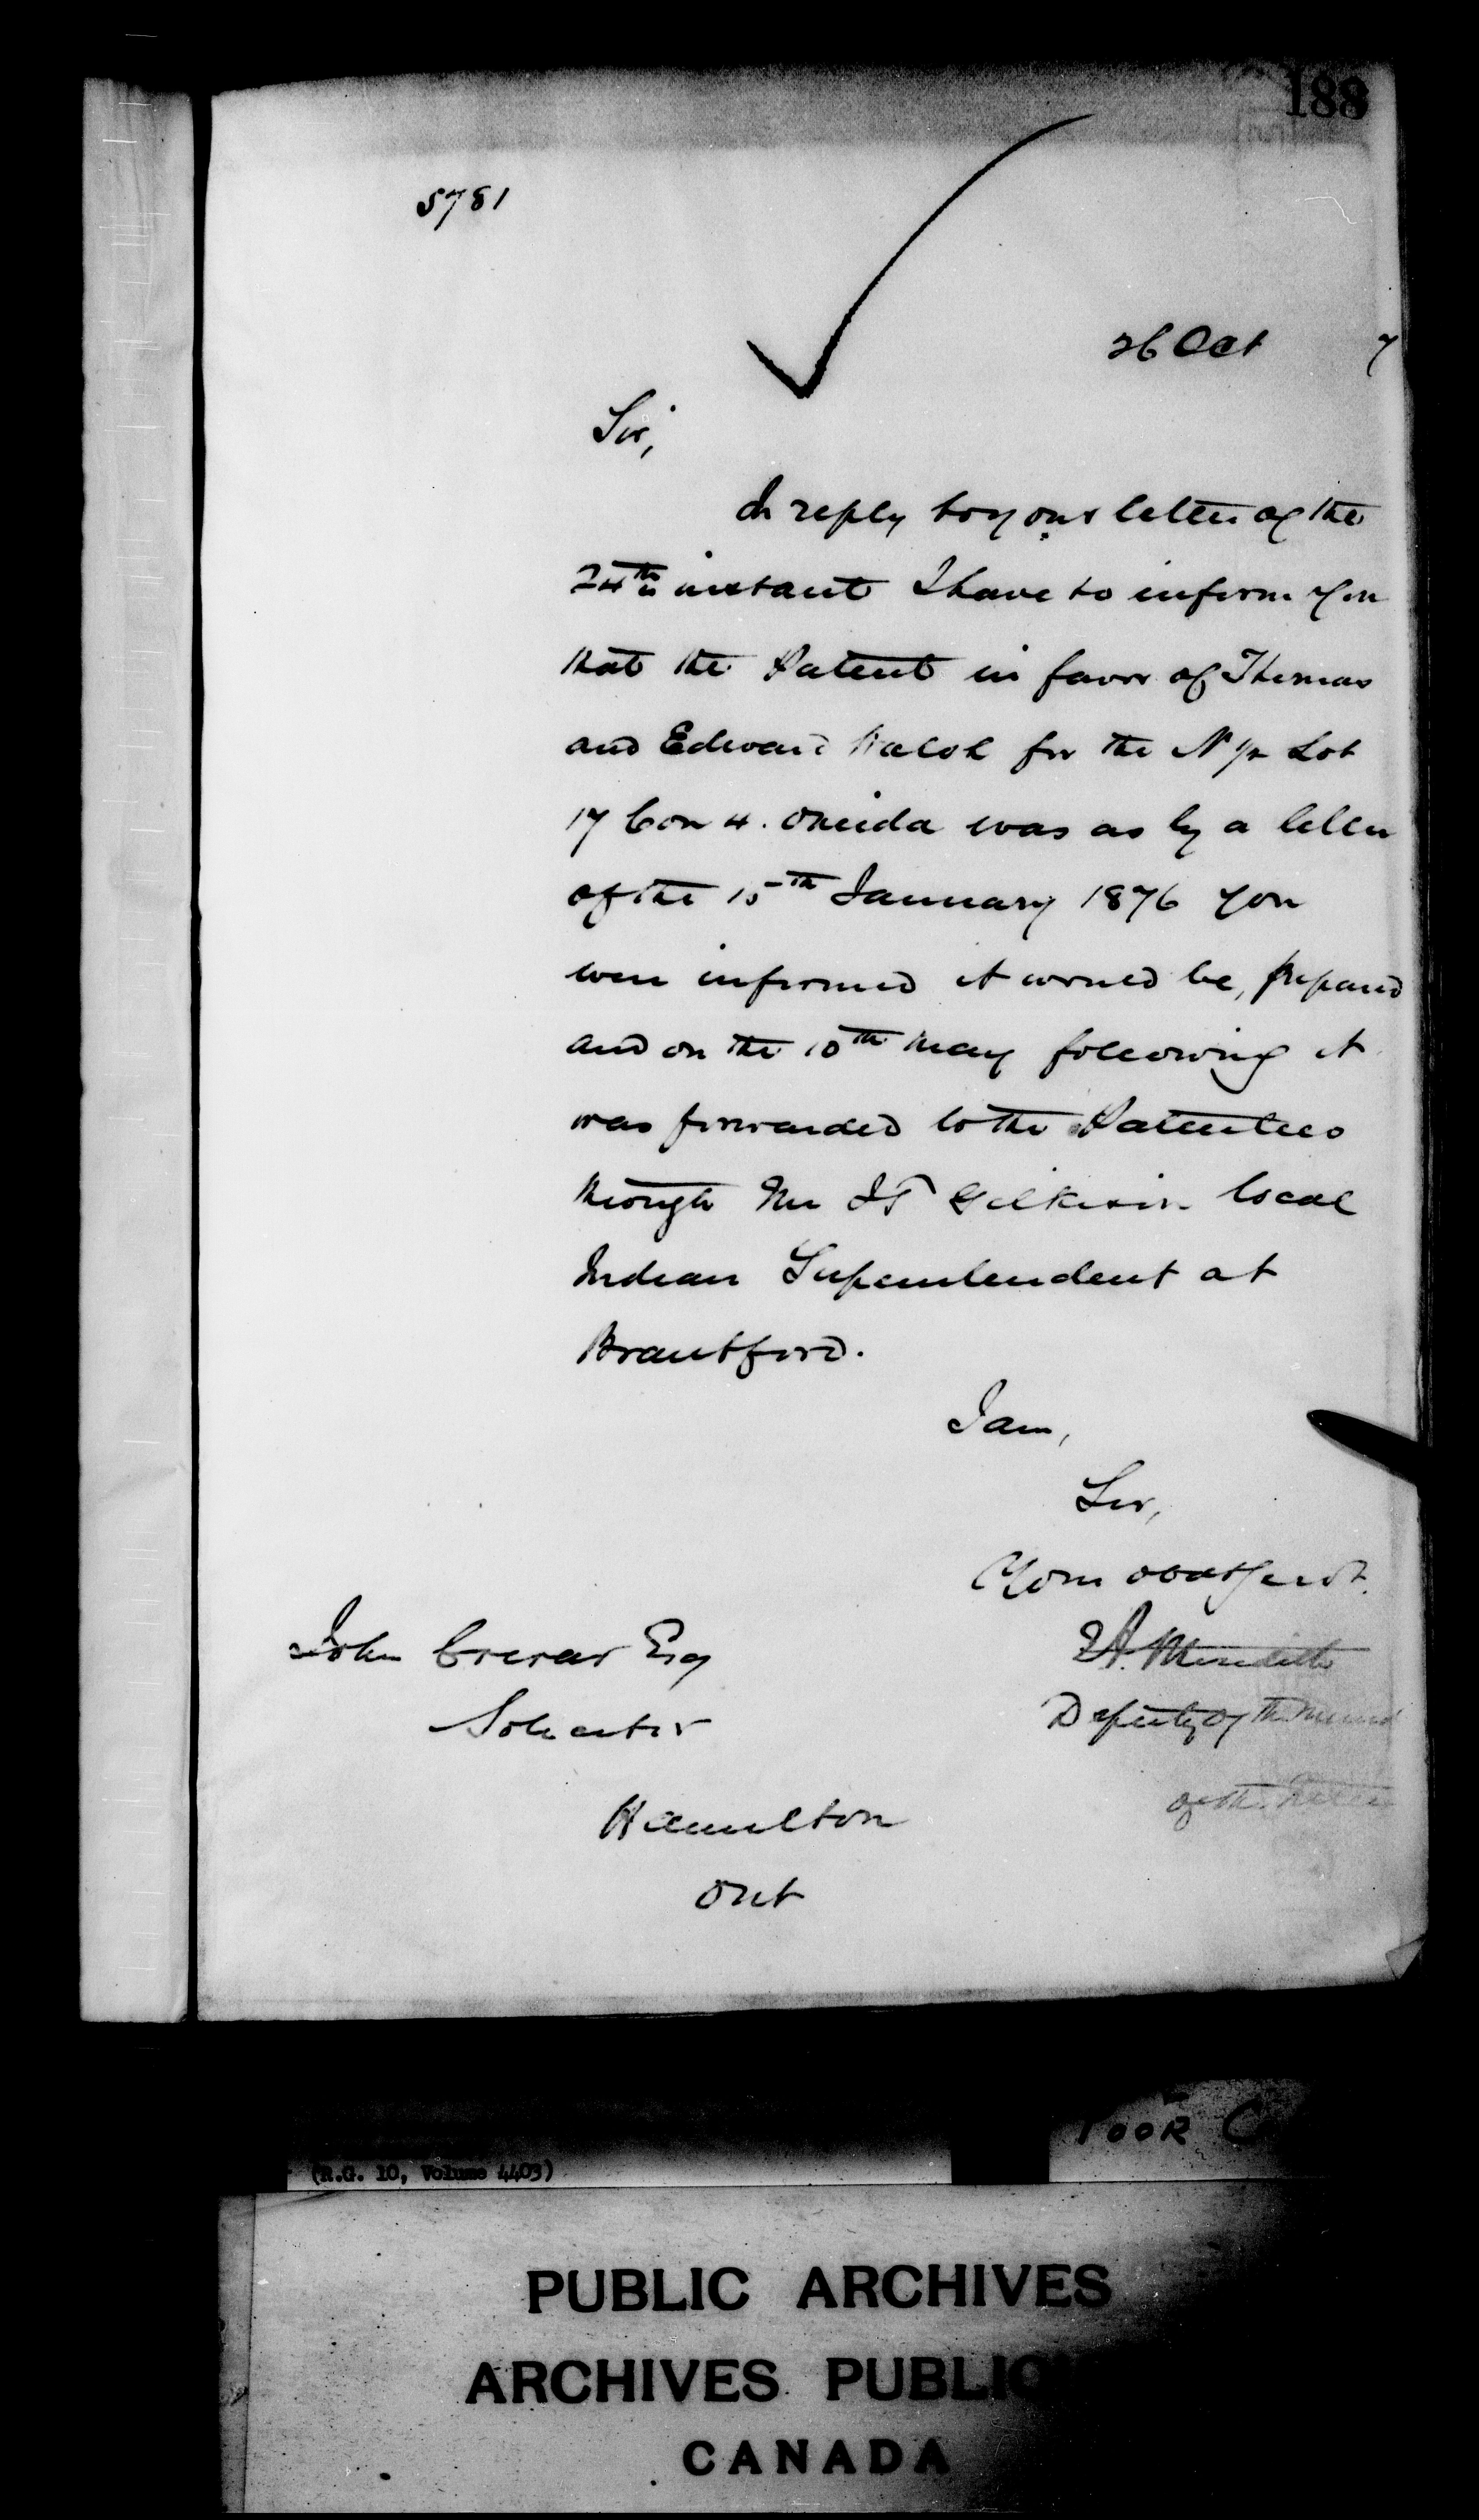 188
5781
26 Oct 7
Sir,
In reply to your letter of the
24th instant I have to inform you
that the Patent in favor of Thomas
and Edward Walsh for the N 1/2 Lot
17 Con 4. Oneida was as by a letter
of the 15th January 1876 you
were informed it would be, prepared
and on the 10th May following it
was forwarded to the Patentees
through Mr JT Gilkison local
Indian Superintendent at
Brantford.
I am,
Sir,
Your obdt Servt.
EA. Meredith
Deputy of the
of the
John Crerar Esq
Solicitor
Hamilton
Ont
(R.G. 10, Volume 4403)
POOR C
PUBLIC ARCHIVES
ARCHIVES PUBLIC
CANADA